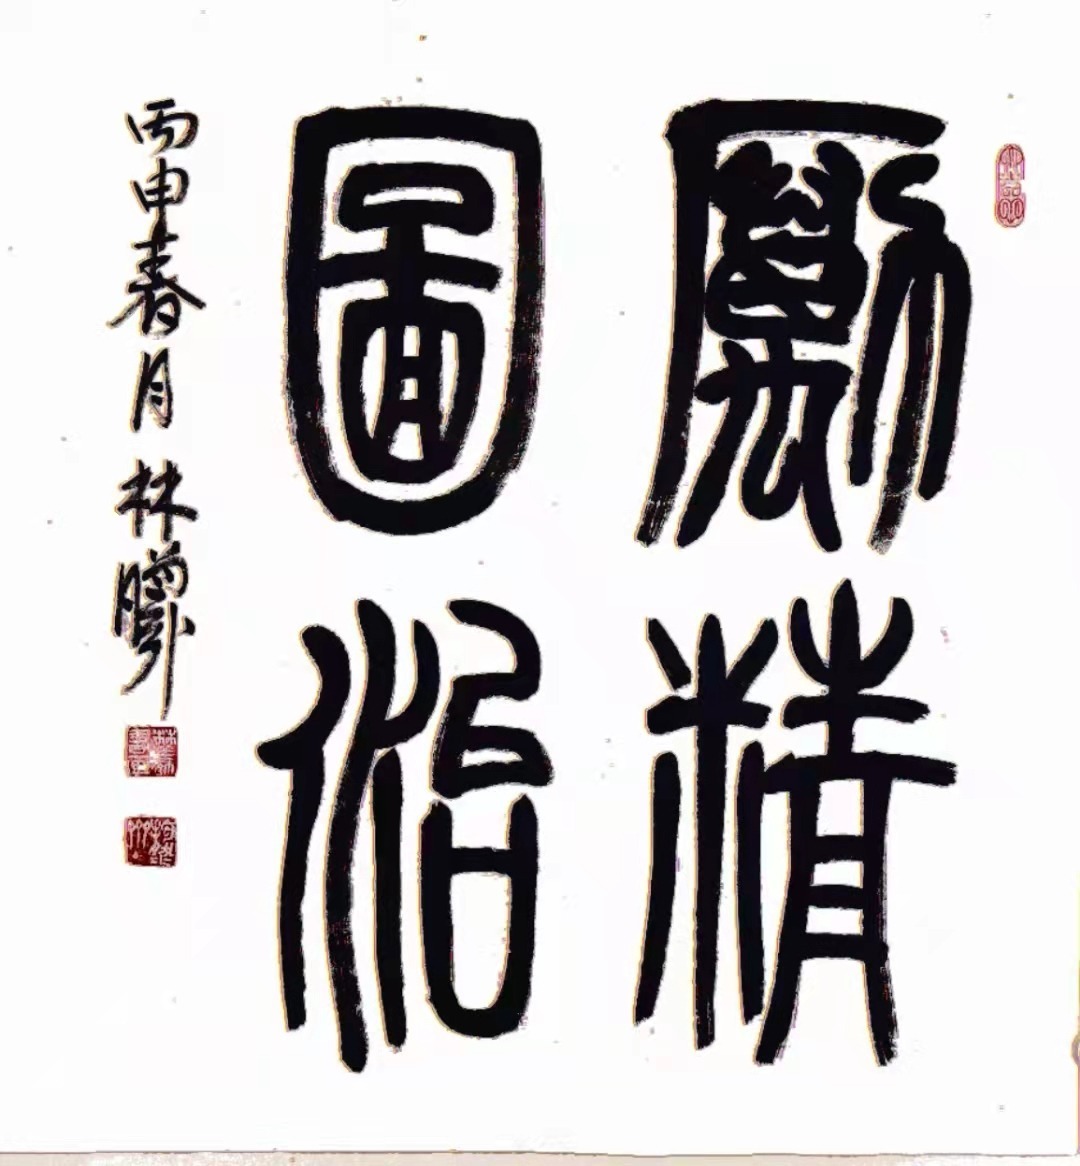 勵精
圖治
丙申春月 林